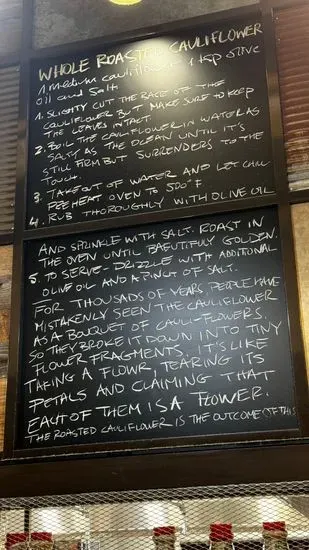 WHOLE ROASTED CAULIFLOWER
1. medium cauliflower 1 tsp olive
oil and salt
1. SLIGHTLY CUT THE BASE OF THE
CAULIFLOWER BUT MAKE SURE TO KEEP
THE LEAVES INTACT
2. BOIL THE CAULIFLOWER IN WATER AS
SALTY AS THE OCEAN UNTIL IT'S
STILL FIRM BUT SURRENDERS TO THE
TOUCH.
3. TAKE OUT OF WATER AND LET CHILL
PEEHEAT OVEN TO 500°F
4. RUB THOROUGHLY WITH OLIVE OIL
AND SPRINKLE WITH SALT. ROAST IN
THE OVEN UNTIL BAEUTIFULLY GOLDEN.
5. TO SERVE - DRIZZLE WITH ADDITIONAL
OLIVE OIL AND A PINCH OF SALT.
FOR THOUSANDS OF YEARS, PEOPLE HAVE
MISTAKENLY SEEN THE CAULIFLOWER
AS A BOUQUET OF CAULI-FLOWERS.
SO THEY BROKE IT DOWN INTO TINY
FLOWER FRAGMENTS. IT'S LIKE
TAKING A FLOWR, TEARING ITS
PETALS AND CLAIMING THAT
EACH OF THEM IS A FLOWER.
THE ROASTED CAULIFLOWER IS THE OUTCOME OF THIS